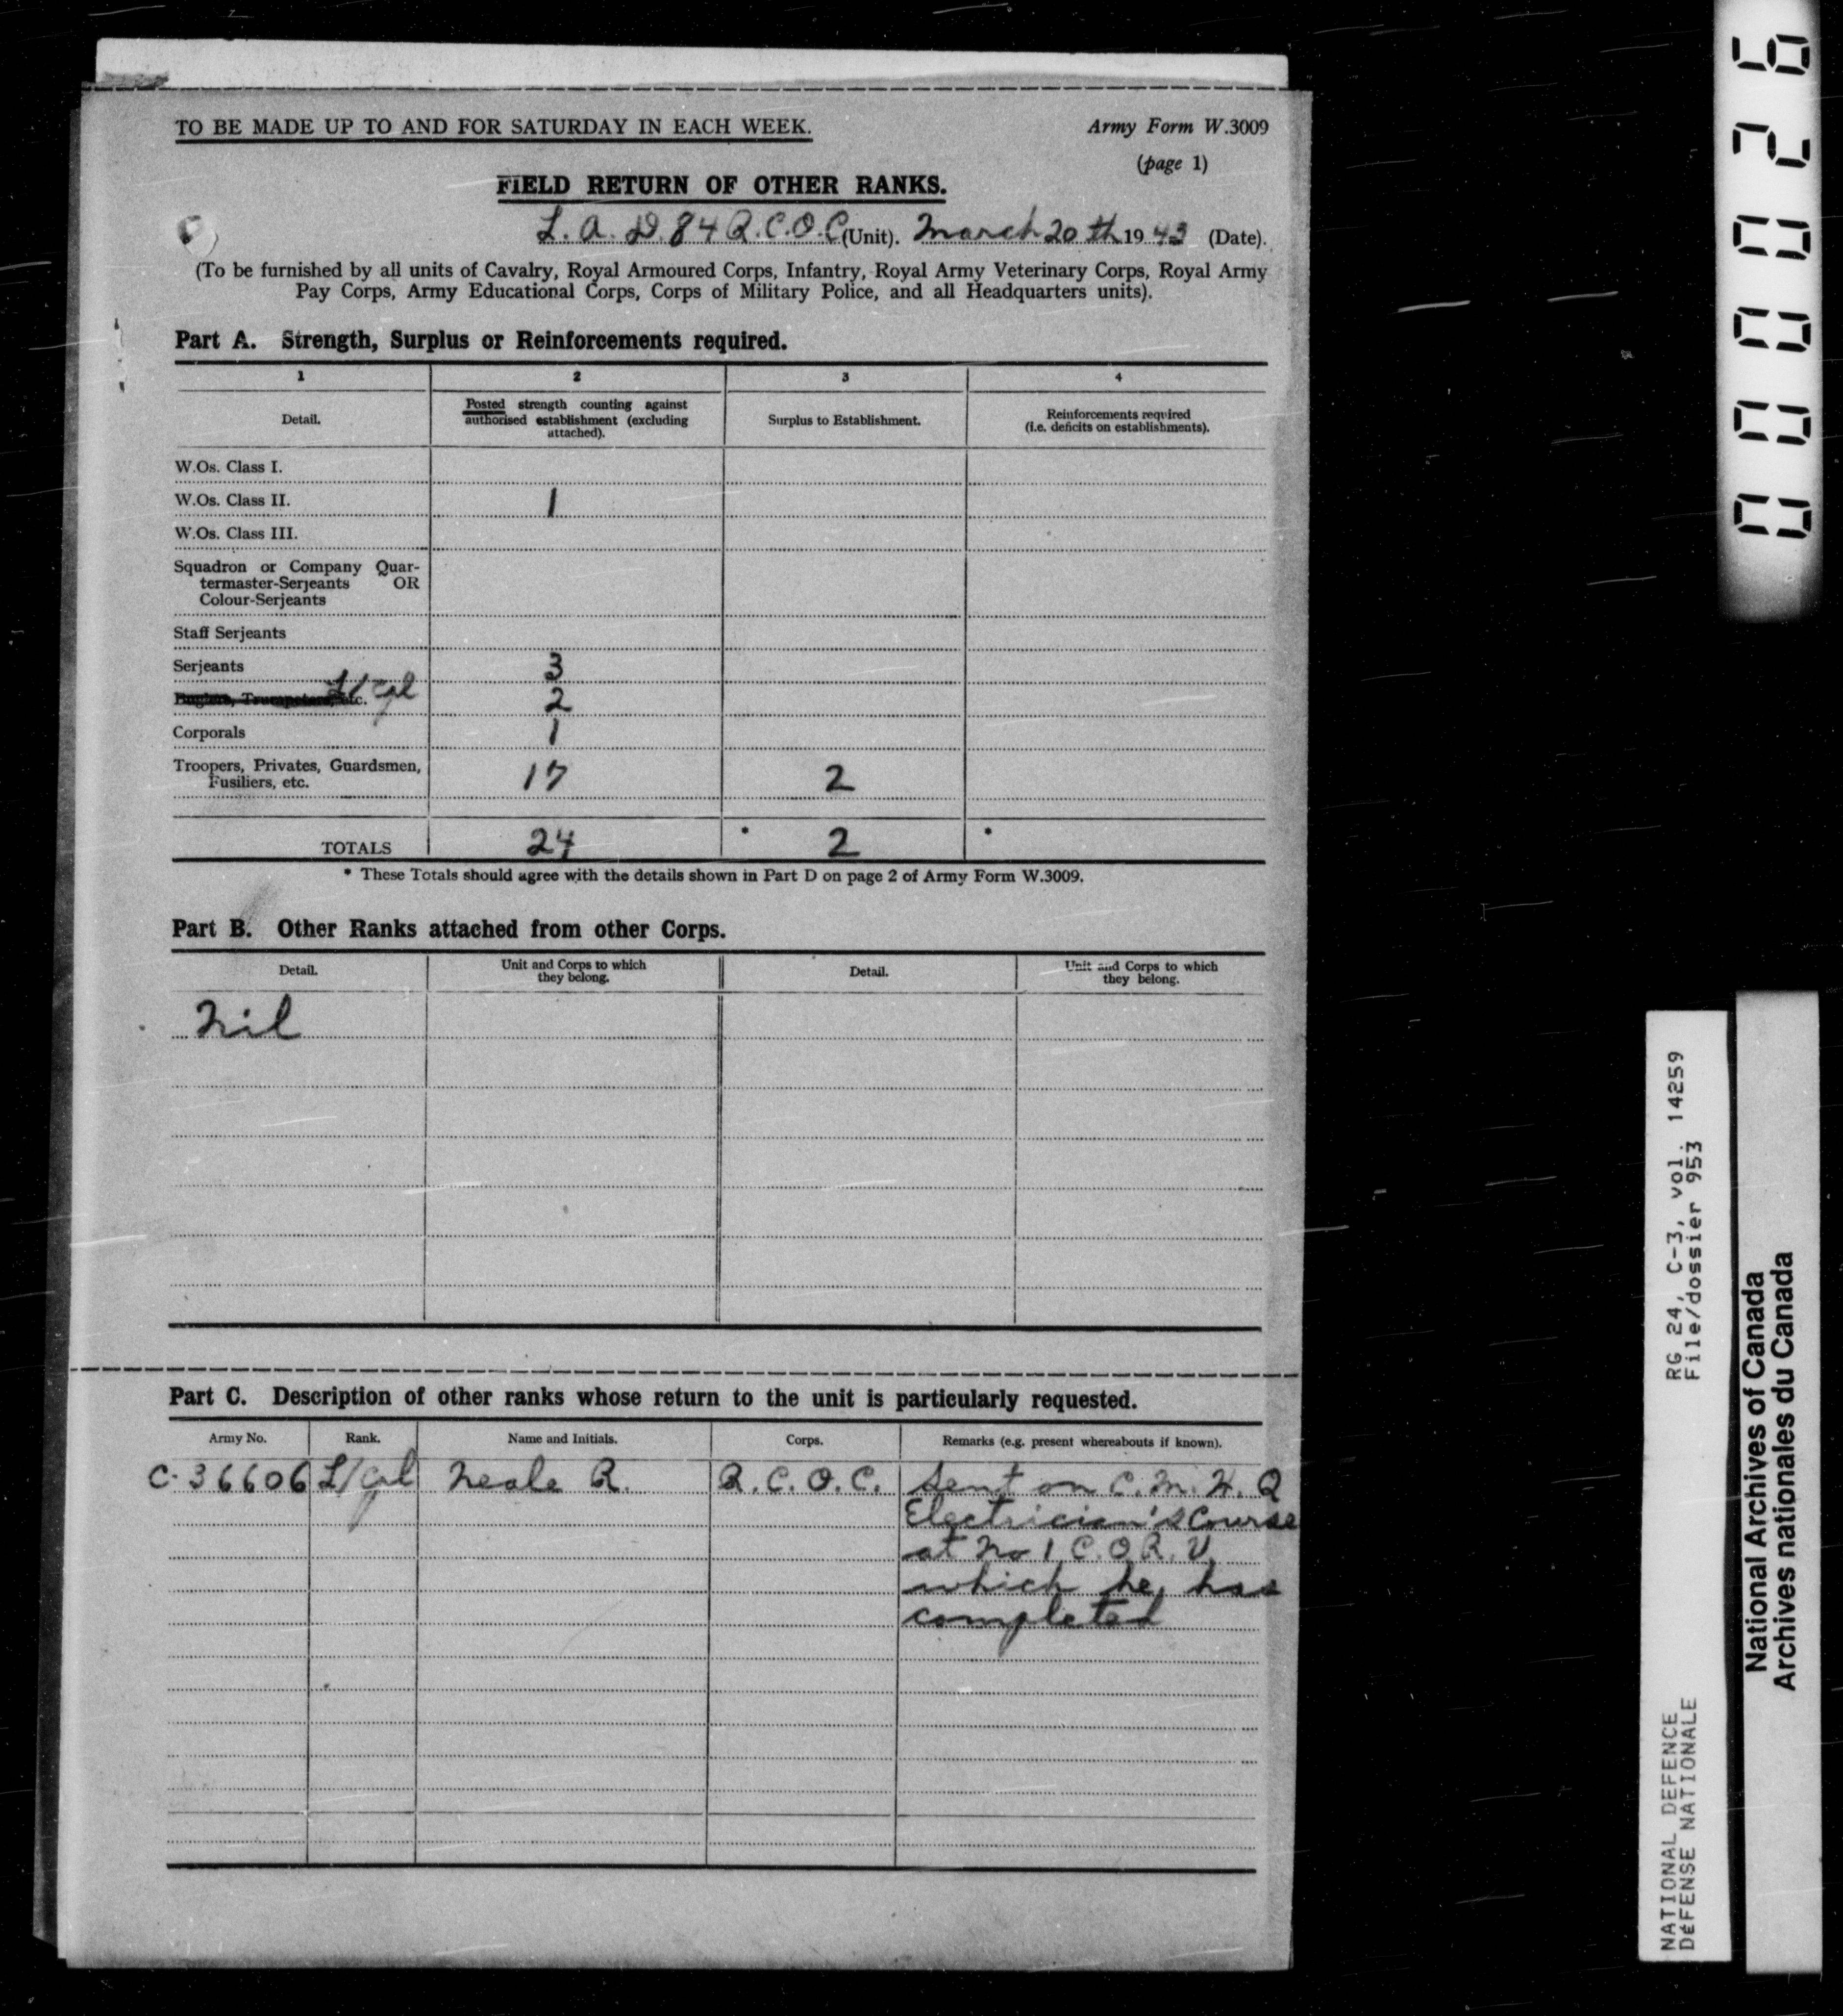 TO BE MADE UP TO AND FOR SATURDAY IN EACH WEEK.
Army Form W.3009
(page 1)
FIELD RETURN OF OTHER RANKS.
L. A. D. 84 R.C.O.C (Unit). March 20th 1943 (Date).
(To be furnished by all units of Cavalry, Royal Armoured Corps, Infantry, Royal Army Veterinary Corps, Royal Army
Pay Corps, Army Educational Corps, Corps of Military Police, and all Headquarters units).
Part A. Strength, Surplus or Reinforcements required.
1 2 3 4
Detail.
Posted strength counting against
authorised establishment (excluding
attached).
Surplus to Establishment.
Reinforcements required
(i.e. deficits on establishments).
W.Os. Class I.
W.Os. Class II. 1
W.Os. Class III.
Squadron or Company Quar-
termaster-Serjeants OR
Colour-Serjeants
Staff Serjeants
Serjeants 3
Buglers, Trumpeters, etc. L/Cpl 2
Corporals 1
Troopers, Privates, Guardsmen,
Fusiliers, etc. 17 2
TOTALS 24 * 2 *
* These Totals should agree with the details shown in Part D on page 2 of Army Form W.3009.
Part B. Other Ranks attached from other Corps.
Detail.
Unit and Corps to which
they belong.
Detail.
Unit and Corps to which
they belong.
Nil
Part C. Description of other ranks whose return to the unit is particularly requested.
Army No. Rank. Name and Initials. Corps. Remarks (e.g. present whereabouts if known).
C-36606 L/Cpl Neale R. R.C.O.C. Sent on C.M.H.Q
Electrician's Course
at No 1 C.O.R.U.
which he has
completed
000026
RG 24, C-3, vol. 14259
File/dossier 953
NATIONAL DEFENCE
DéFENSE NATIONALE
National Archives of Canada
Archives nationales du Canada